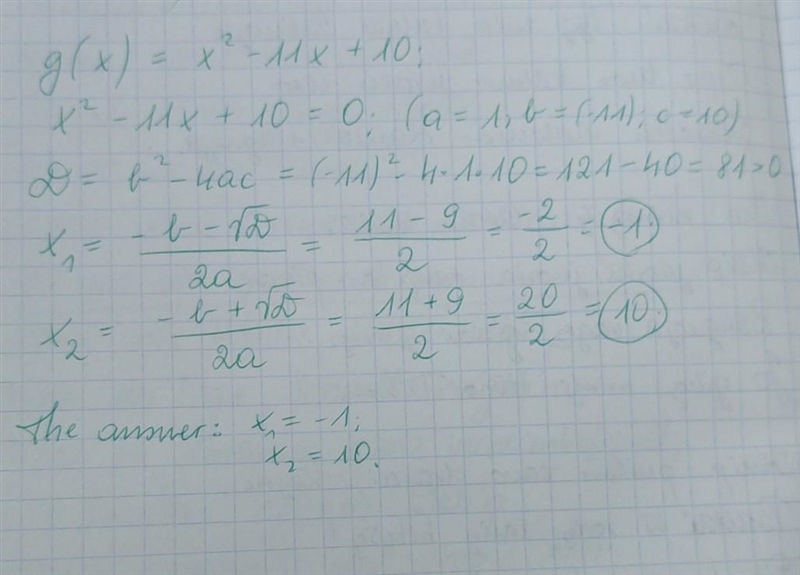 g(x) = x² - 11x + 10;
x² - 11x + 10 = 0; (a = 1, b = (-11); c = 10)
D = b² - 4ac = (-11)² - 4·1·10 = 121 - 40 = 81 > 0
x₁ = (-b - √D)/2a = (11 - 9)/2 = -2/2 = -1;
x₂ = (-b + √D)/2a = (11 + 9)/2 = 20/2 = 10;
The answer: x₁ = -1;
x₂ = 10.